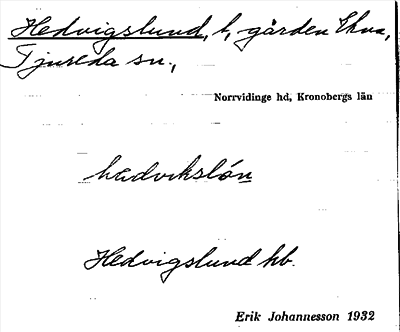 Hedvigslund, t, gården Ekna,
Tjureda sn.,
Norrvidinge hd, Kronobergs län
hedvikslón
Hedvigslund kb.
Erik Johannesson 1932